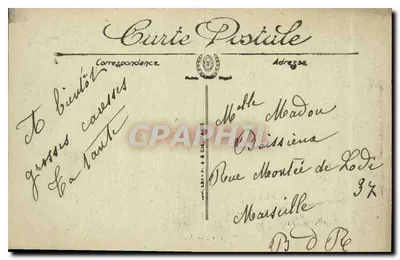 Carte Postale
Correspondence
Adresse
A bientôt
grosses caresses
Ta tante
Melle Madou
Boissieux
Rue Montée de Lodi
37
Marseille
B d R